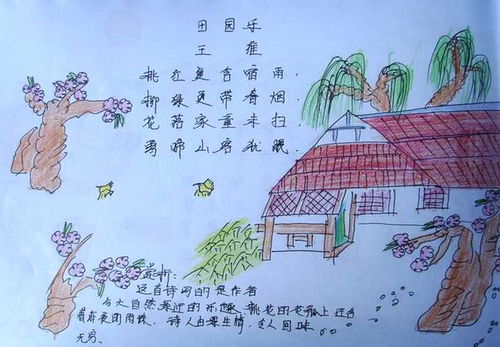 田园乐
王维
桃红复含宿雨，
柳绿更带春烟。
花落家童未扫，
莺啼山客犹眠。
赏析：
这首诗写的是作者
与大自然亲近的乐趣，桃花的花瓣上还含
着昨夜的雨珠，诗人由景生情，令人回味
无穷。